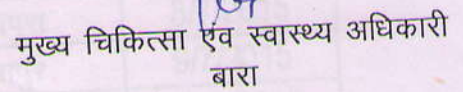 मुख्य चिकित्सा एंव स्वास्थ्य अधिकारी
बारा